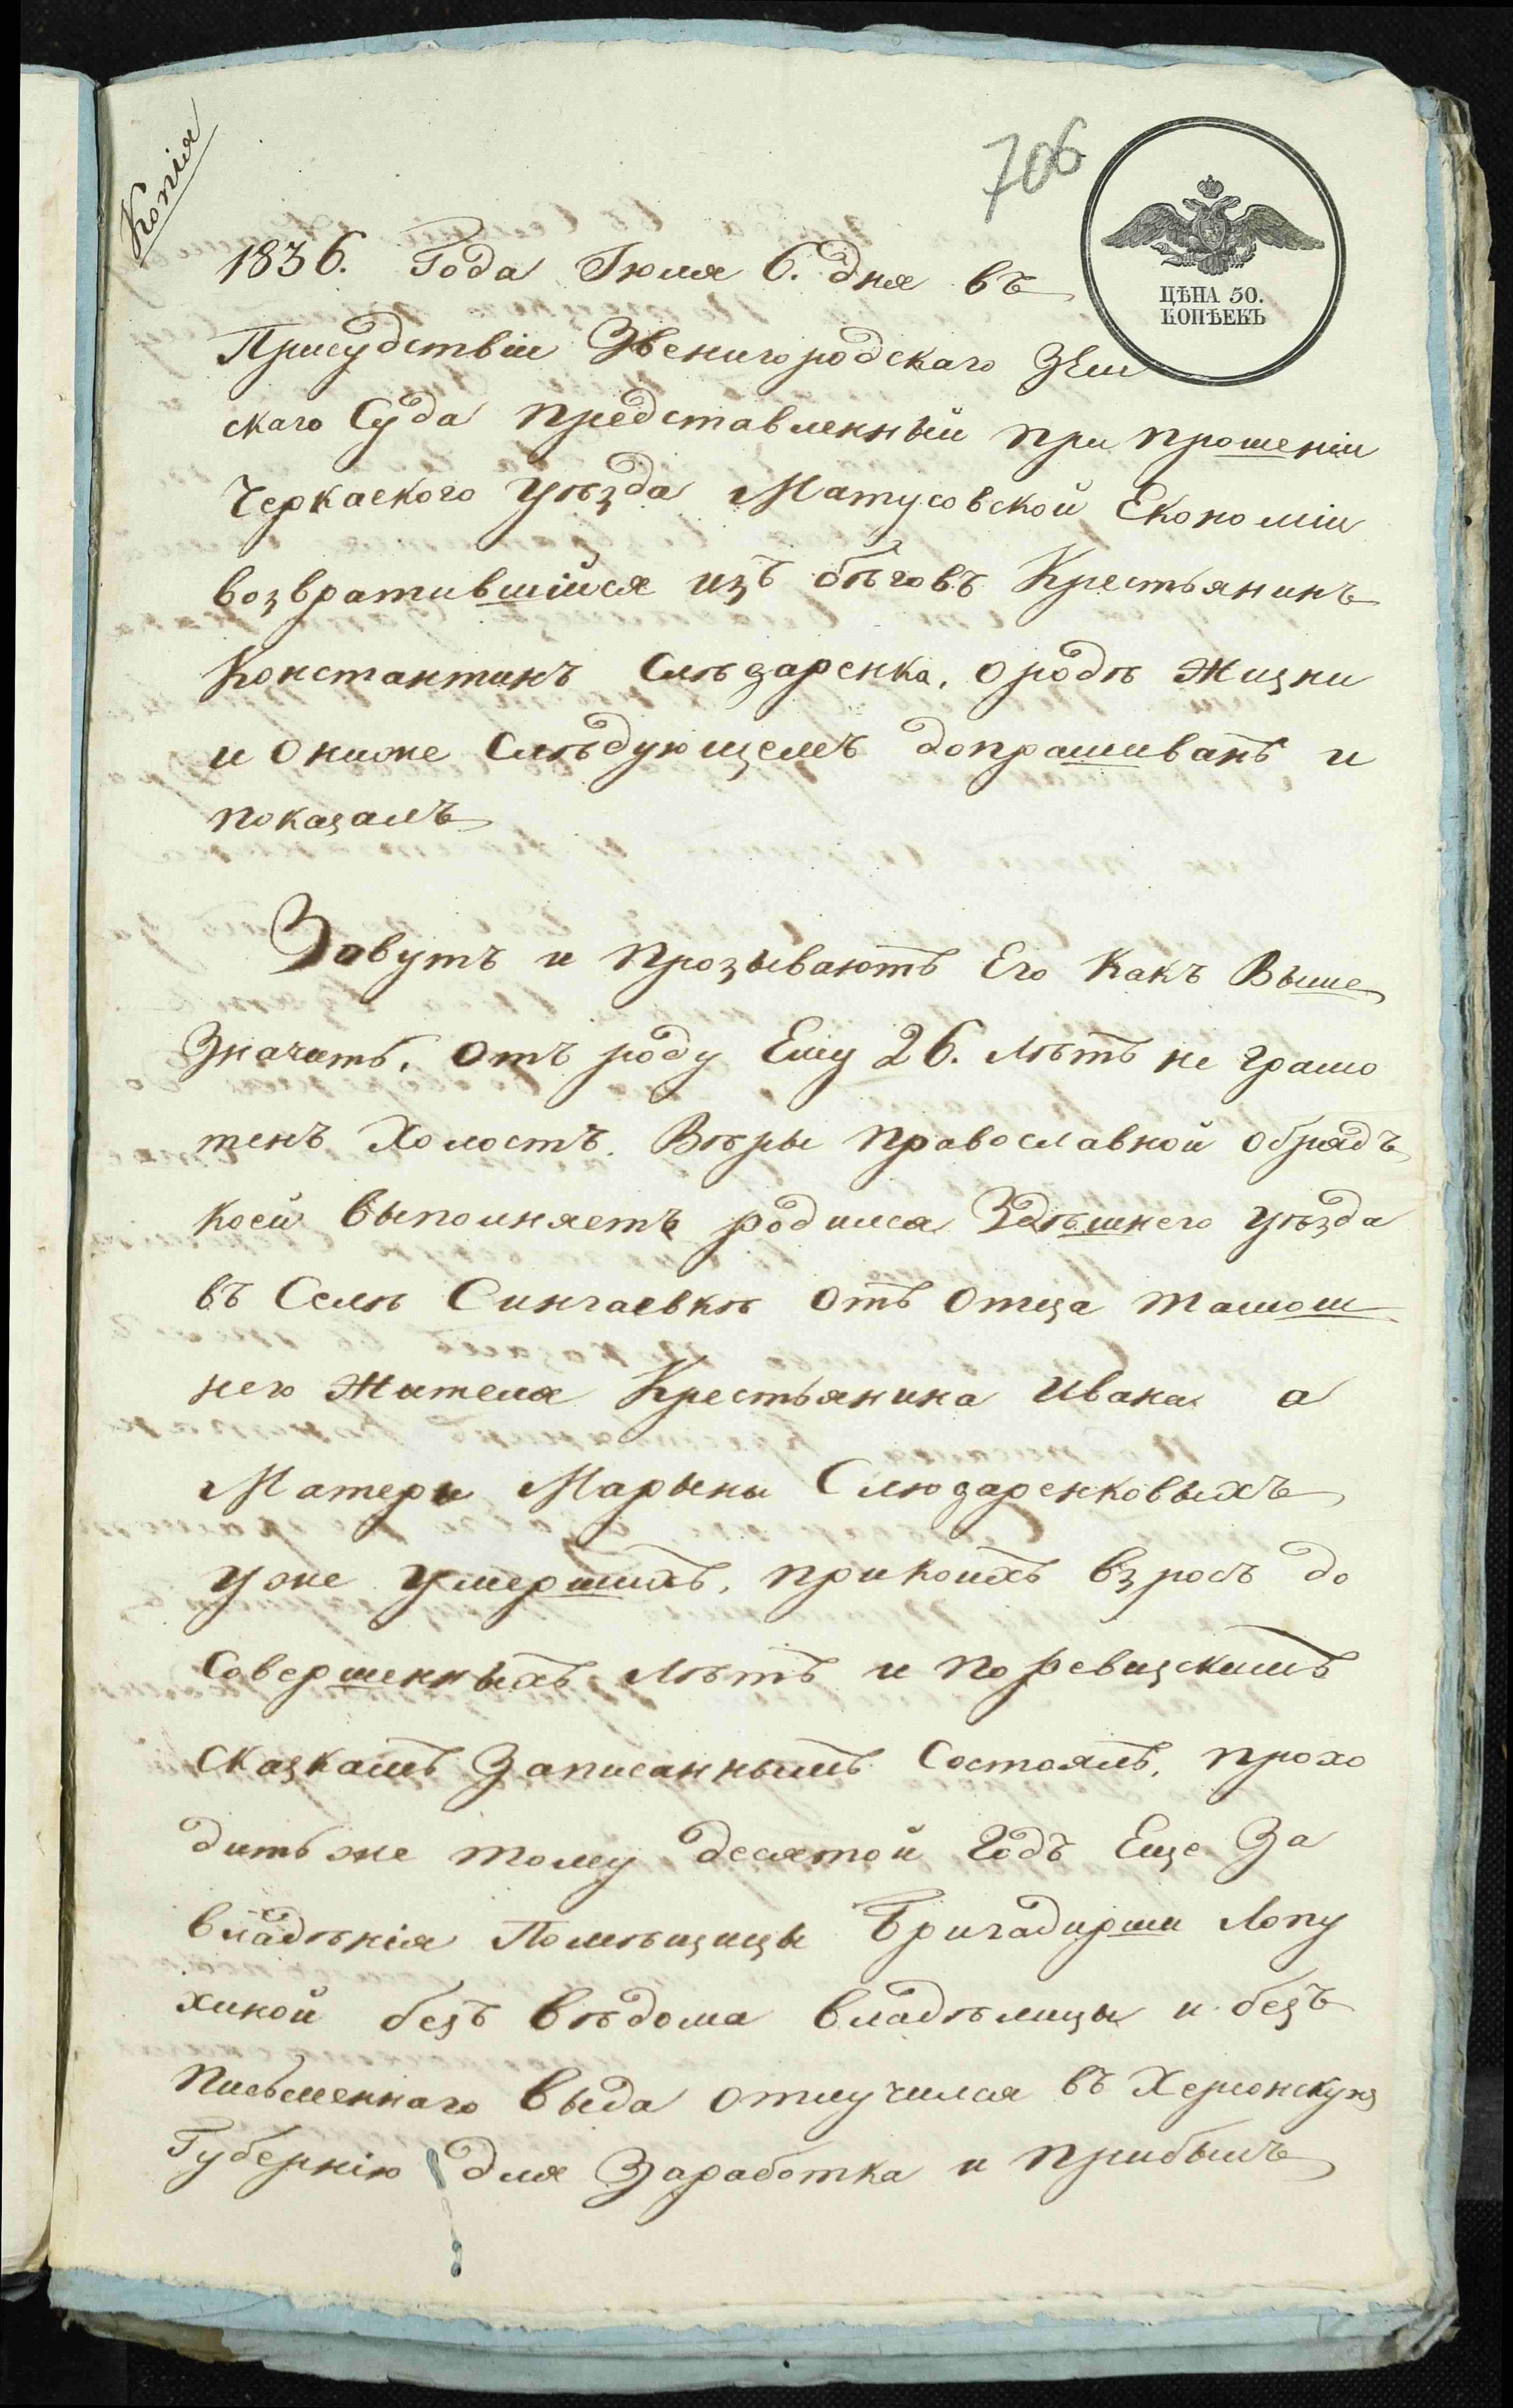 Копія
706
ЦѢНА 50.
КОПѢЕКЪ
1836. Года Іюля 6. дня въ
Присудствіи Звенигородскаго Зем
скаго Суда представленный при прошеніи
Черкаского уѣзда Матусовской Економіи
возвратившійся изъ бѣговъ Крестьянинъ
Константинъ Слѣзаренка, о родѣ жизни
и о ниже слѣдующемъ допрашиванъ и
показалъ
Зовутъ и прозываютъ Его какъ Выше
Значитъ, отъ роду Ему 26. лѣтъ не грамо
тенъ холостъ. Вѣры православной обрядъ
коей выполняетъ родился Здѣшнего уѣзда
въ Селѣ Сингаевкѣ отъ отца тамош
него жителя Крестьянина Ивана а
Матери Марыны Слюзаренковыхъ
уже умершихъ, при коихъ взросъ до
совершенныхъ лѣтъ и по ревизскимъ
сказкамъ Записаннымъ состоялъ, прохо
дитъ же тому десятой годъ Еще За
владѣнія Помѣщицы Бригадирши Лопу
хиной безъ вѣдома владѣлицы и безъ
письменнаго выда отлучился въ Херсонскую
Губернію для Заработка и прибылъ